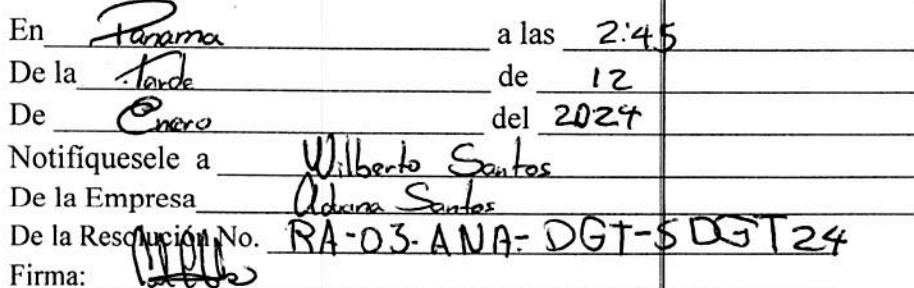 En Panama a las 2:45
De la Tarde de 12
De Enero del 2024
Notifíquesele a Wilberto Santos
De la Empresa Aduana Santos
De la Resolución No. RA-03-ANA-DGT-SDGT24
Firma: